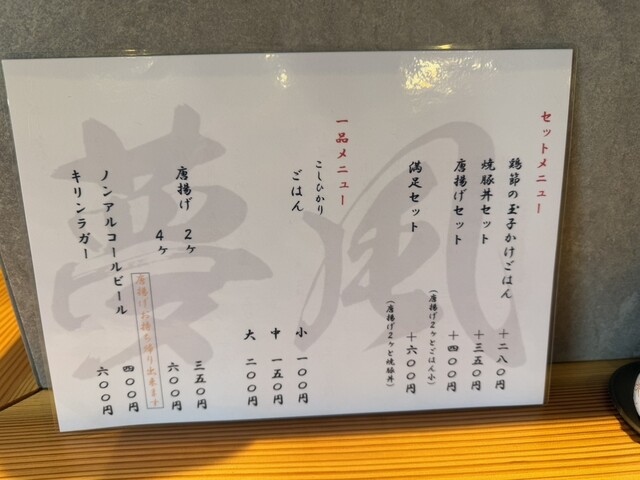 セットメニュー
鶏節の玉子かけごはん +二八〇円
焼豚丼セット +三五〇円
唐揚げセット +四〇〇円
(唐揚げ2ヶとごはん小)
満足セット +六〇〇円
(唐揚げ2ヶと焼豚丼)
一品メニュー
こしひかり
ごはん 小 一〇〇円
中 一五〇円
大 二〇〇円
唐揚げ 2ヶ 三五〇円
4ヶ 六〇〇円
唐揚げお持ち帰り出来ます
ノンアルコールビール 四〇〇円
キリンラガー 六〇〇円
夢風